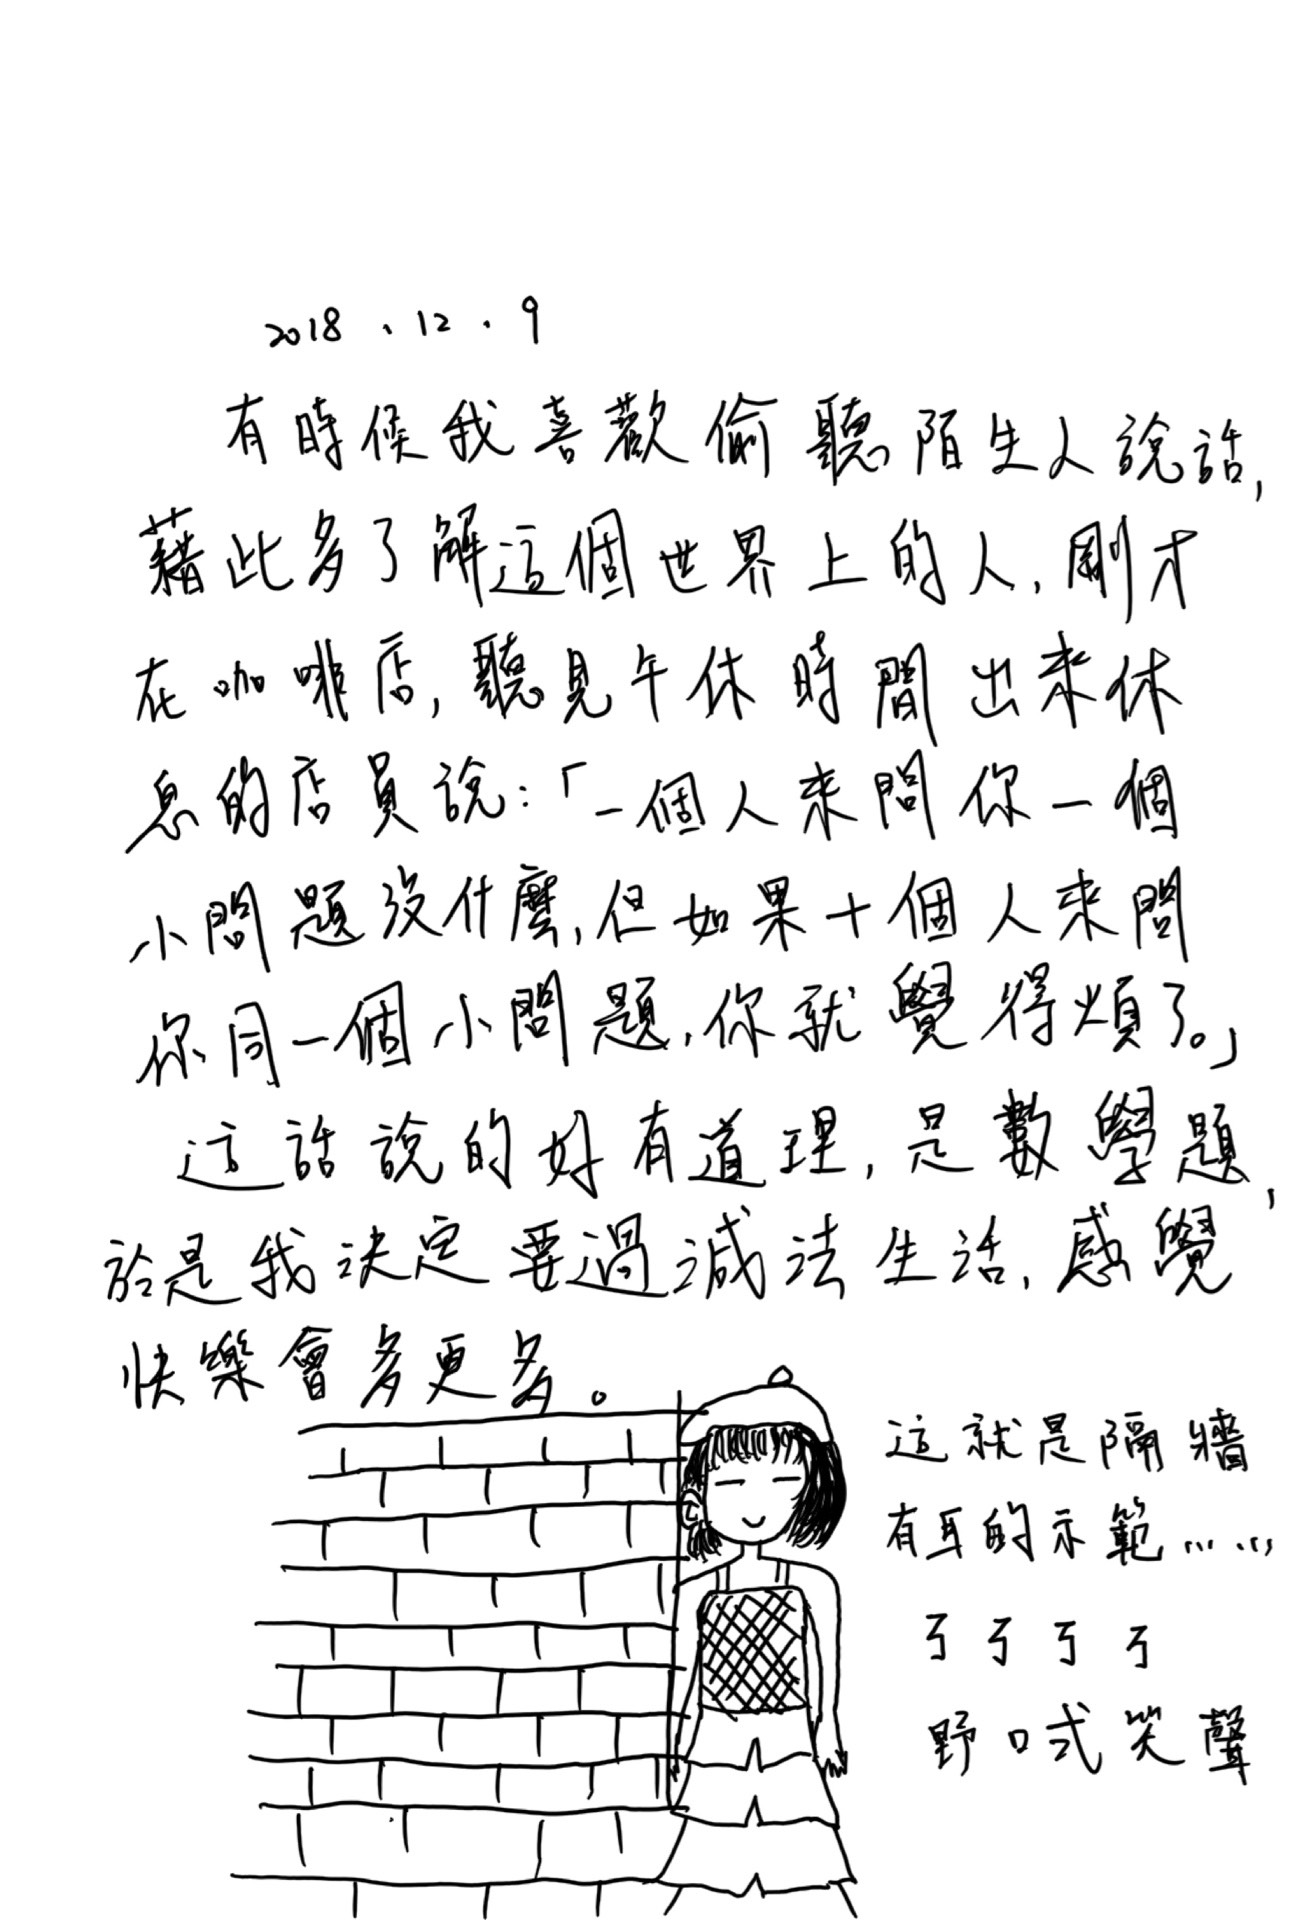 2018.12.9
有時候我喜歡偷聽陌生人說話,
藉此多了解這個世界上的人,剛才
在咖啡店,聽見午休時間出來休
息的店員說:「一個人來問你一個
小問題沒什麼,但如果十個人來問
你同一個小問題,你就覺得煩了。」
這話說的好有道理,是數學題,
於是我決定要過減法生活,感覺
快樂會多更多。
這就是隔牆
有耳的示範……
ㄎㄎㄎㄎ
野口式笑聲